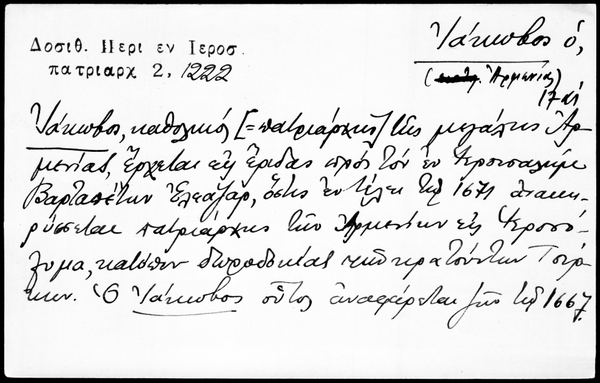 Δοσιθ. Περι εν Ιεροσ.
πατριαρχ 2, 1222
Ἰάκωβος ὁ,
( Ἀρμενίας)
17 αἰ
Ἰάκωβος, καθολικός [=πατριάρχης] τῆς μεγάλης Ἀρ-
μενίας, ἔρχεται εἰς ἔριδας πρὸς τὸν ἐν Ἱεροσολύμοις
Βαρταπέτην Ἐλεάζαρ, ὅστις ἐν τέλει τῷ 1671 ἀνακη-
ρύσσεται πατριάρχης τῶν Ἀρμενίων εἰς Ἱεροσό-
λυμα, κατόπιν δωροδοκίας τῶν κρατούντων Τούρ-
κων. Ὁ Ἰάκωβος οὗτος ἀναφέρεται ζῶν τῷ 1667.